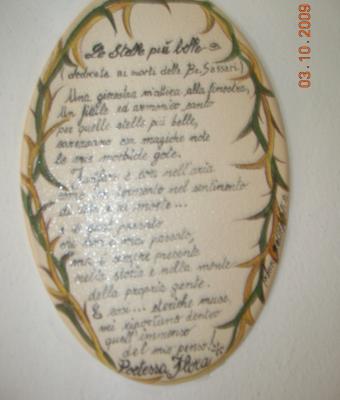 Le Stelle più belle
(dedicata ai morti della Br. Sassari)
Una giovestra m'attira alla finestra,
Un flebile ed armonico canto
per quelle stelle più belle,
carezzano con magiche note
le mie morbide gote.
è così nell'aria
come un tormento nel sentimento
di vita e di morte...
e il suo passato
non è mai passato,
ma è sempre presente
nella storia e nella mente
della propria gente.
E così... storiche muse,
mi riportano dentro
quell'immenso
del mio penso!
Poetessa Flora
03.10.2009